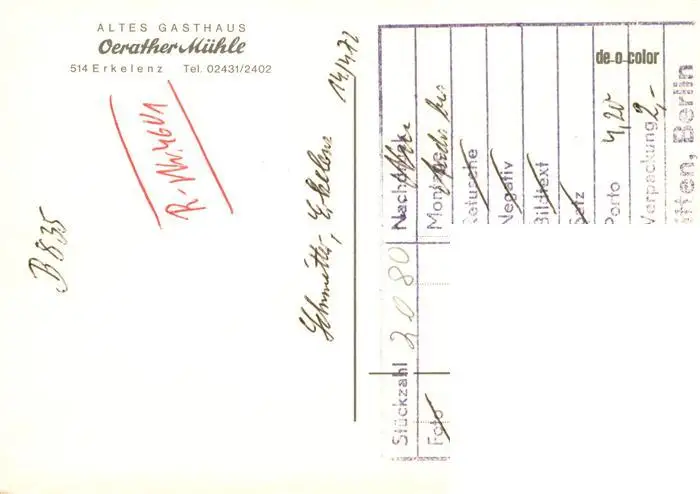 ALTES GASTHAUS
Oerather Mühle
514 Erkelenz Tel. 02431/2402
B 835
Schmitter, Erkelenz 14/4.72
de-o-color
Stückzahl 2080
Foto
Retusche
Negativ
Bildtext
Satz
Porto 4,20
Verpackung 2,-
Berlin